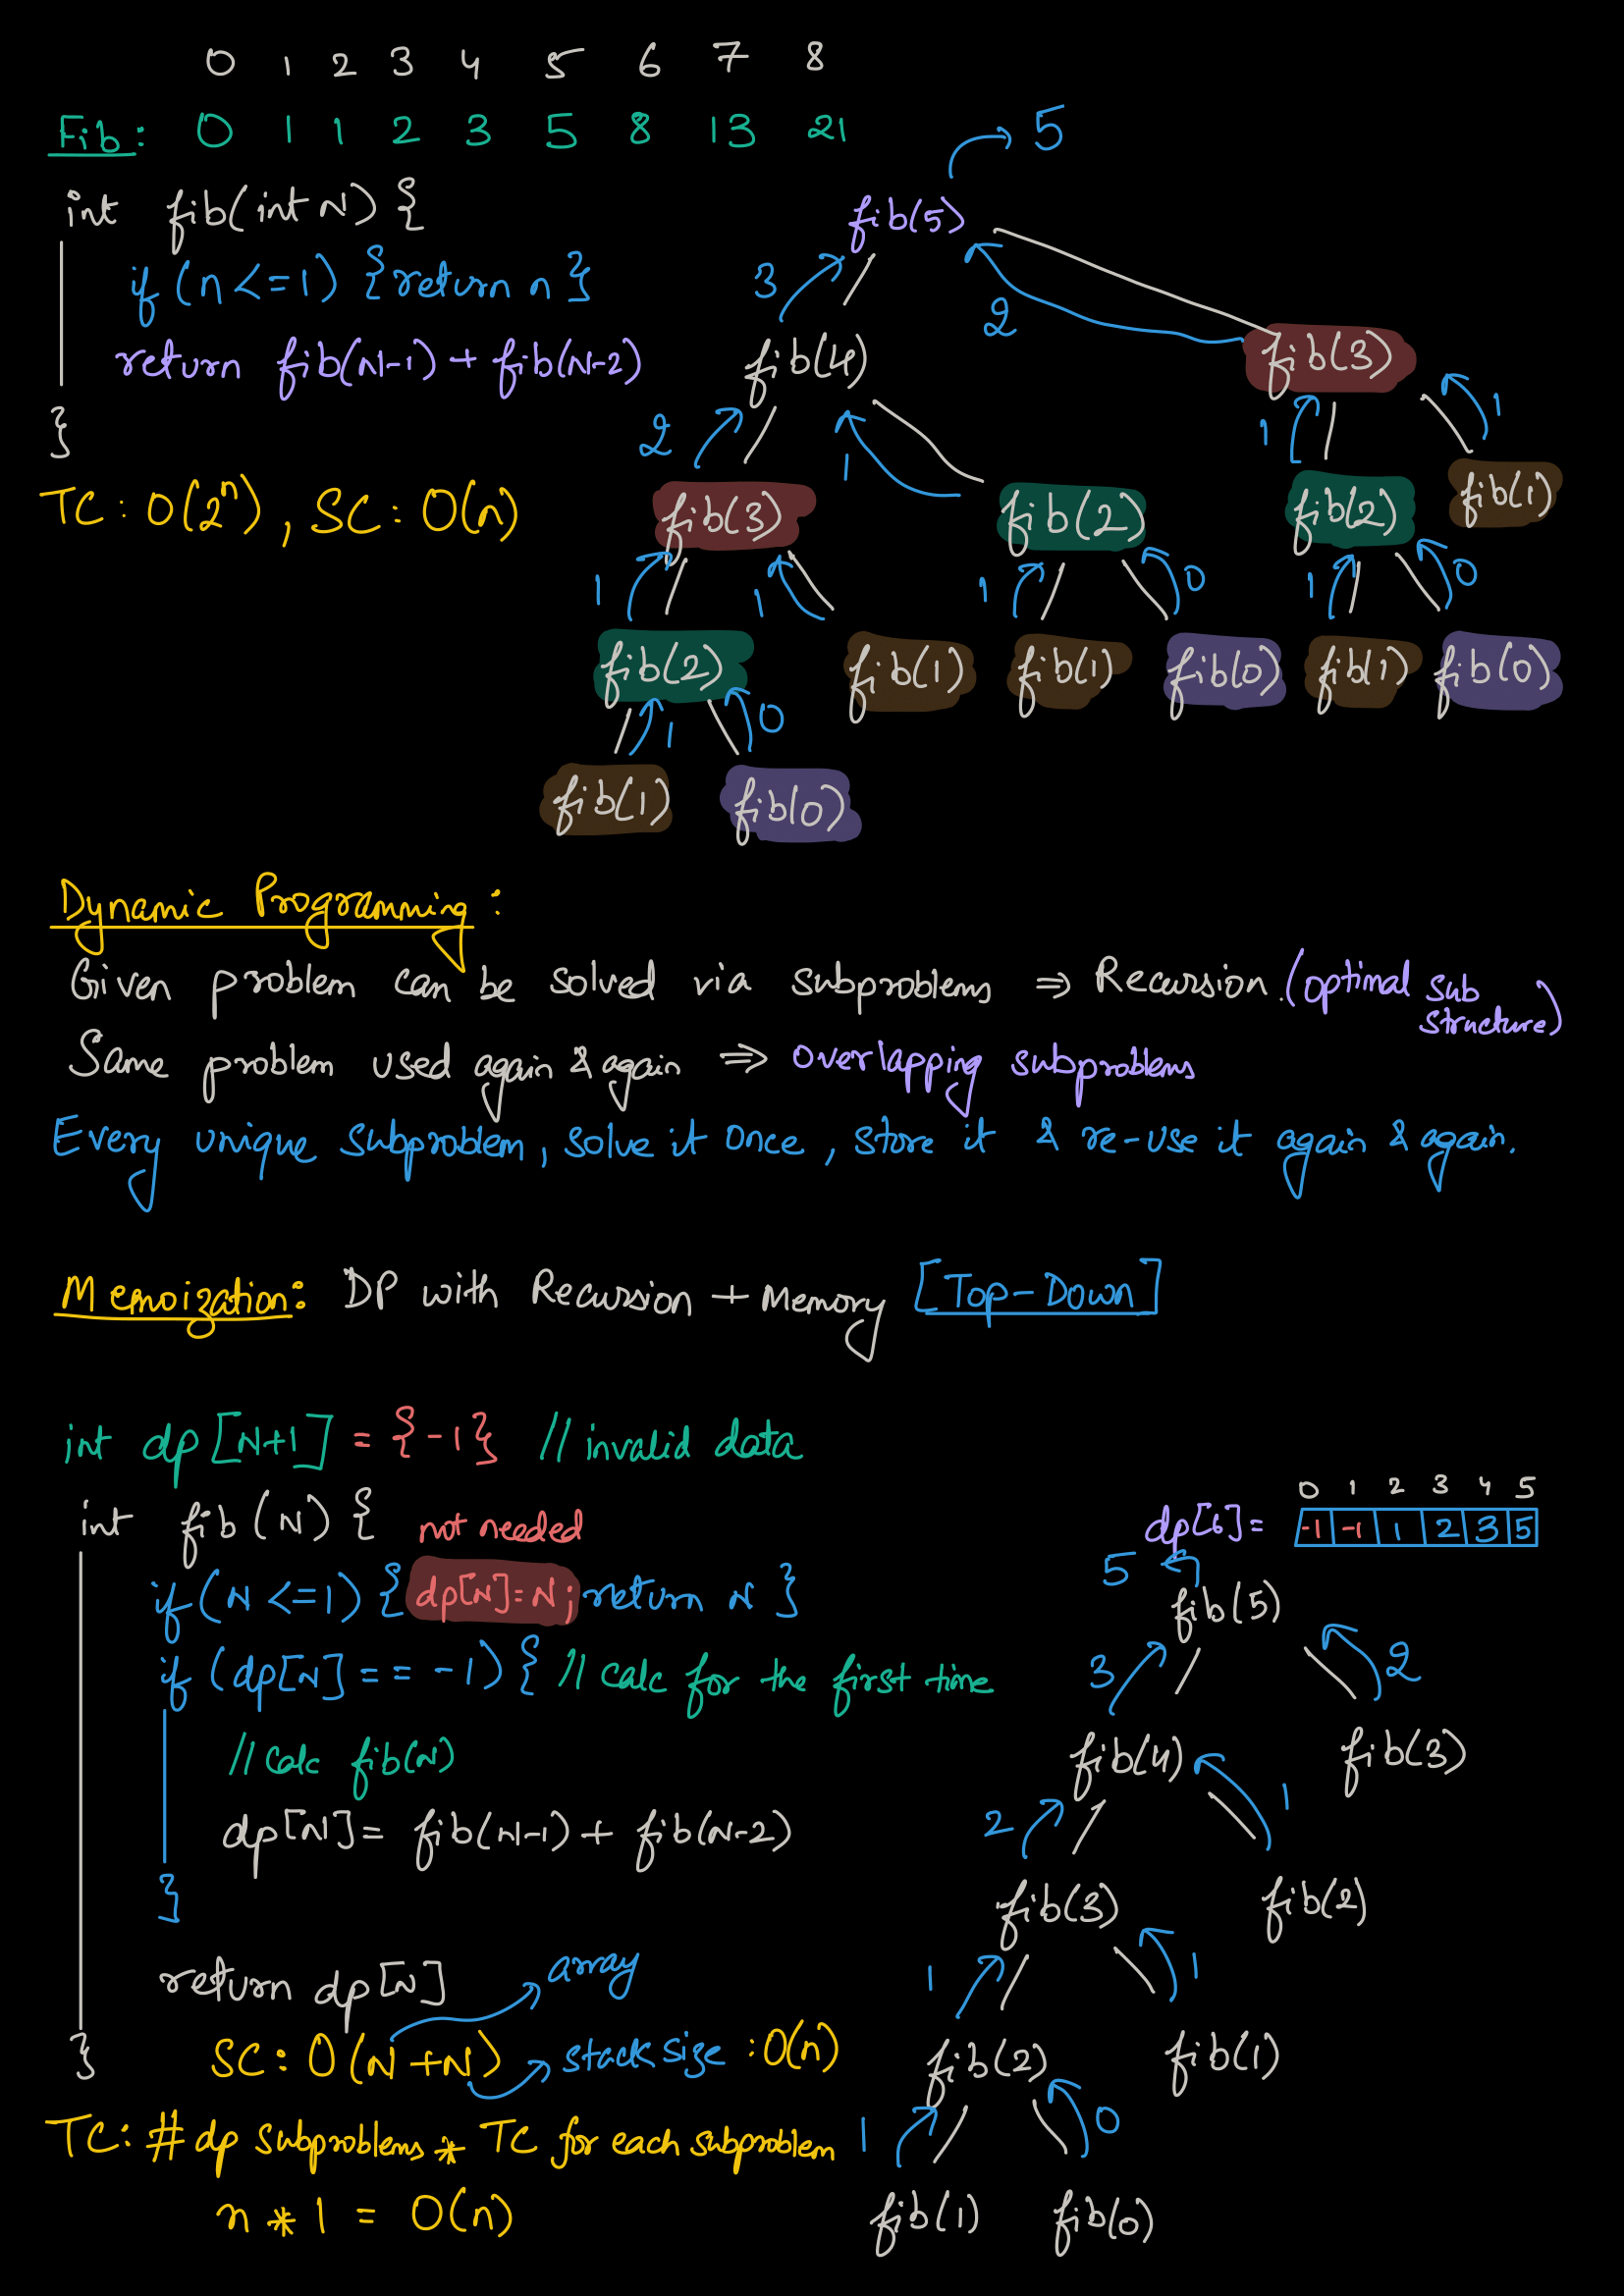 0 1 2 3 4 5 6 7 8
Fib: 0 1 1 2 3 5 8 13 21
int fib(int N) {
if (n <= 1) {return n}
return fib(N-1) + fib(N-2)
}
TC: O(2^n), SC: O(n)
5
fib(5)
3 2
fib(4) fib(3)
2 1 1 1
fib(3) fib(2) fib(2) fib(1)
1 1 1 0 1 0
fib(2) fib(1) fib(1) fib(0) fib(1) fib(0)
1 0
fib(1) fib(0)
Dynamic Programming:
Given problem can be solved via subproblems => Recursion. (optimal sub
structure)
Same problem used again & again => overlapping subproblems
Every unique subproblem, solve it once, store it & re-use it again & again.
Memoization: DP with Recursion + Memory [Top-Down]
int dp[N+1] = {-1} // invalid data
int fib(N) {
not needed
if (N <= 1) { dp[N]=N; return N }
if (dp[N] == -1) { // calc for the first time
// calc fib(N)
dp[N] = fib(N-1) + fib(N-2)
}
return dp[N]
}
array
SC: O(N+N) stack size : O(n)
TC: # dp subproblems * TC for each subproblem
n * 1 = O(n)
0 1 2 3 4 5
dp[6] = -1 -1 1 2 3 5
5
fib(5)
3 2
fib(4) fib(3)
2 1
fib(3) fib(2)
1 1
fib(2) fib(1)
1 0
fib(1) fib(0)